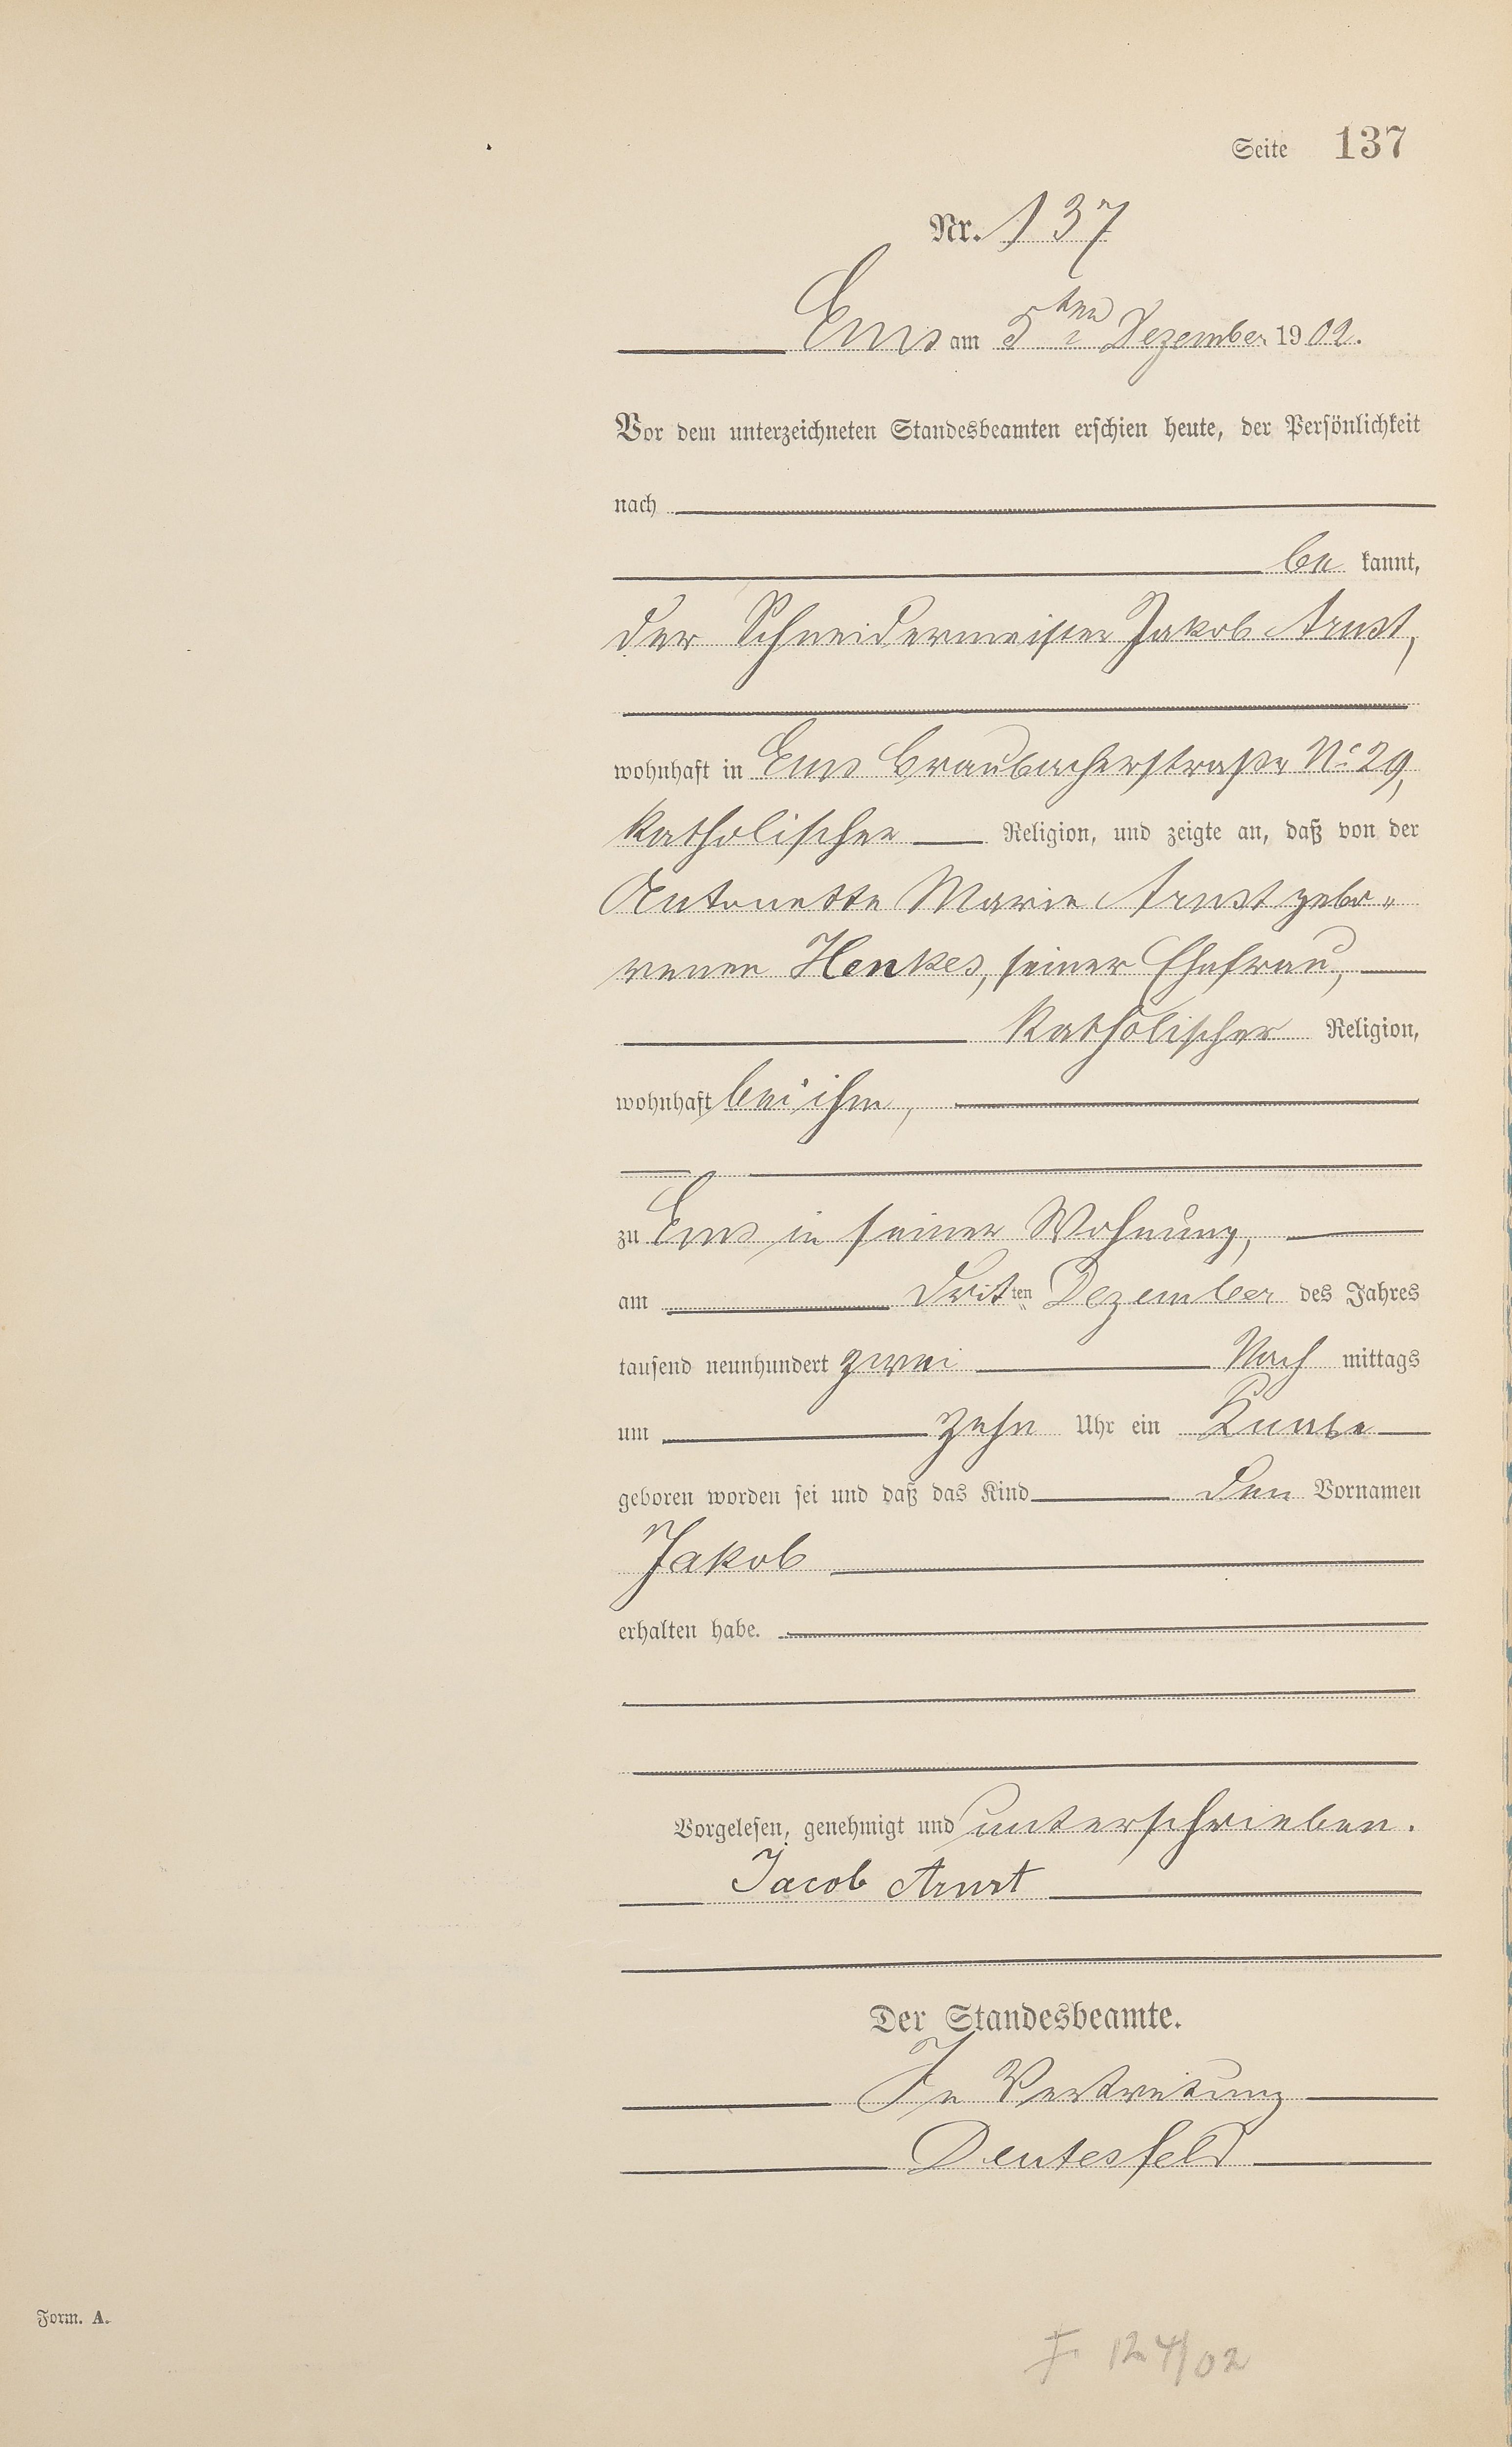 Seite 137
Nr. 137
Ems am 5ten Dezember 1902.
Vor dem unterzeichneten Standesbeamten erschien heute, der Persönlichkeit
nach
be kannt,
der Schneidermeister Jakob Arnst,
wohnhaft in Ems Braubacherstraße No 29,
katholischer Religion, und zeigte an, daß von der
Antonette Marie Arnst gebo„
renen Henkes, seiner Ehefrau,
katholischer Religion,
wohnhaft bei ihm,
zu Ems in seiner Wohnung,
am dritten Dezember des Jahres
tausend neunhundert zwei Nach mittags
um zehn Uhr ein Knabe
geboren worden sei und daß das Kind den Vornamen
Jakob
erhalten habe.
Vorgelesen, genehmigt und unterschrieben.
Jacob Arnst
Der Standesbeamte.
In Vertretung
Deutesfeld
Form. A.
124/02